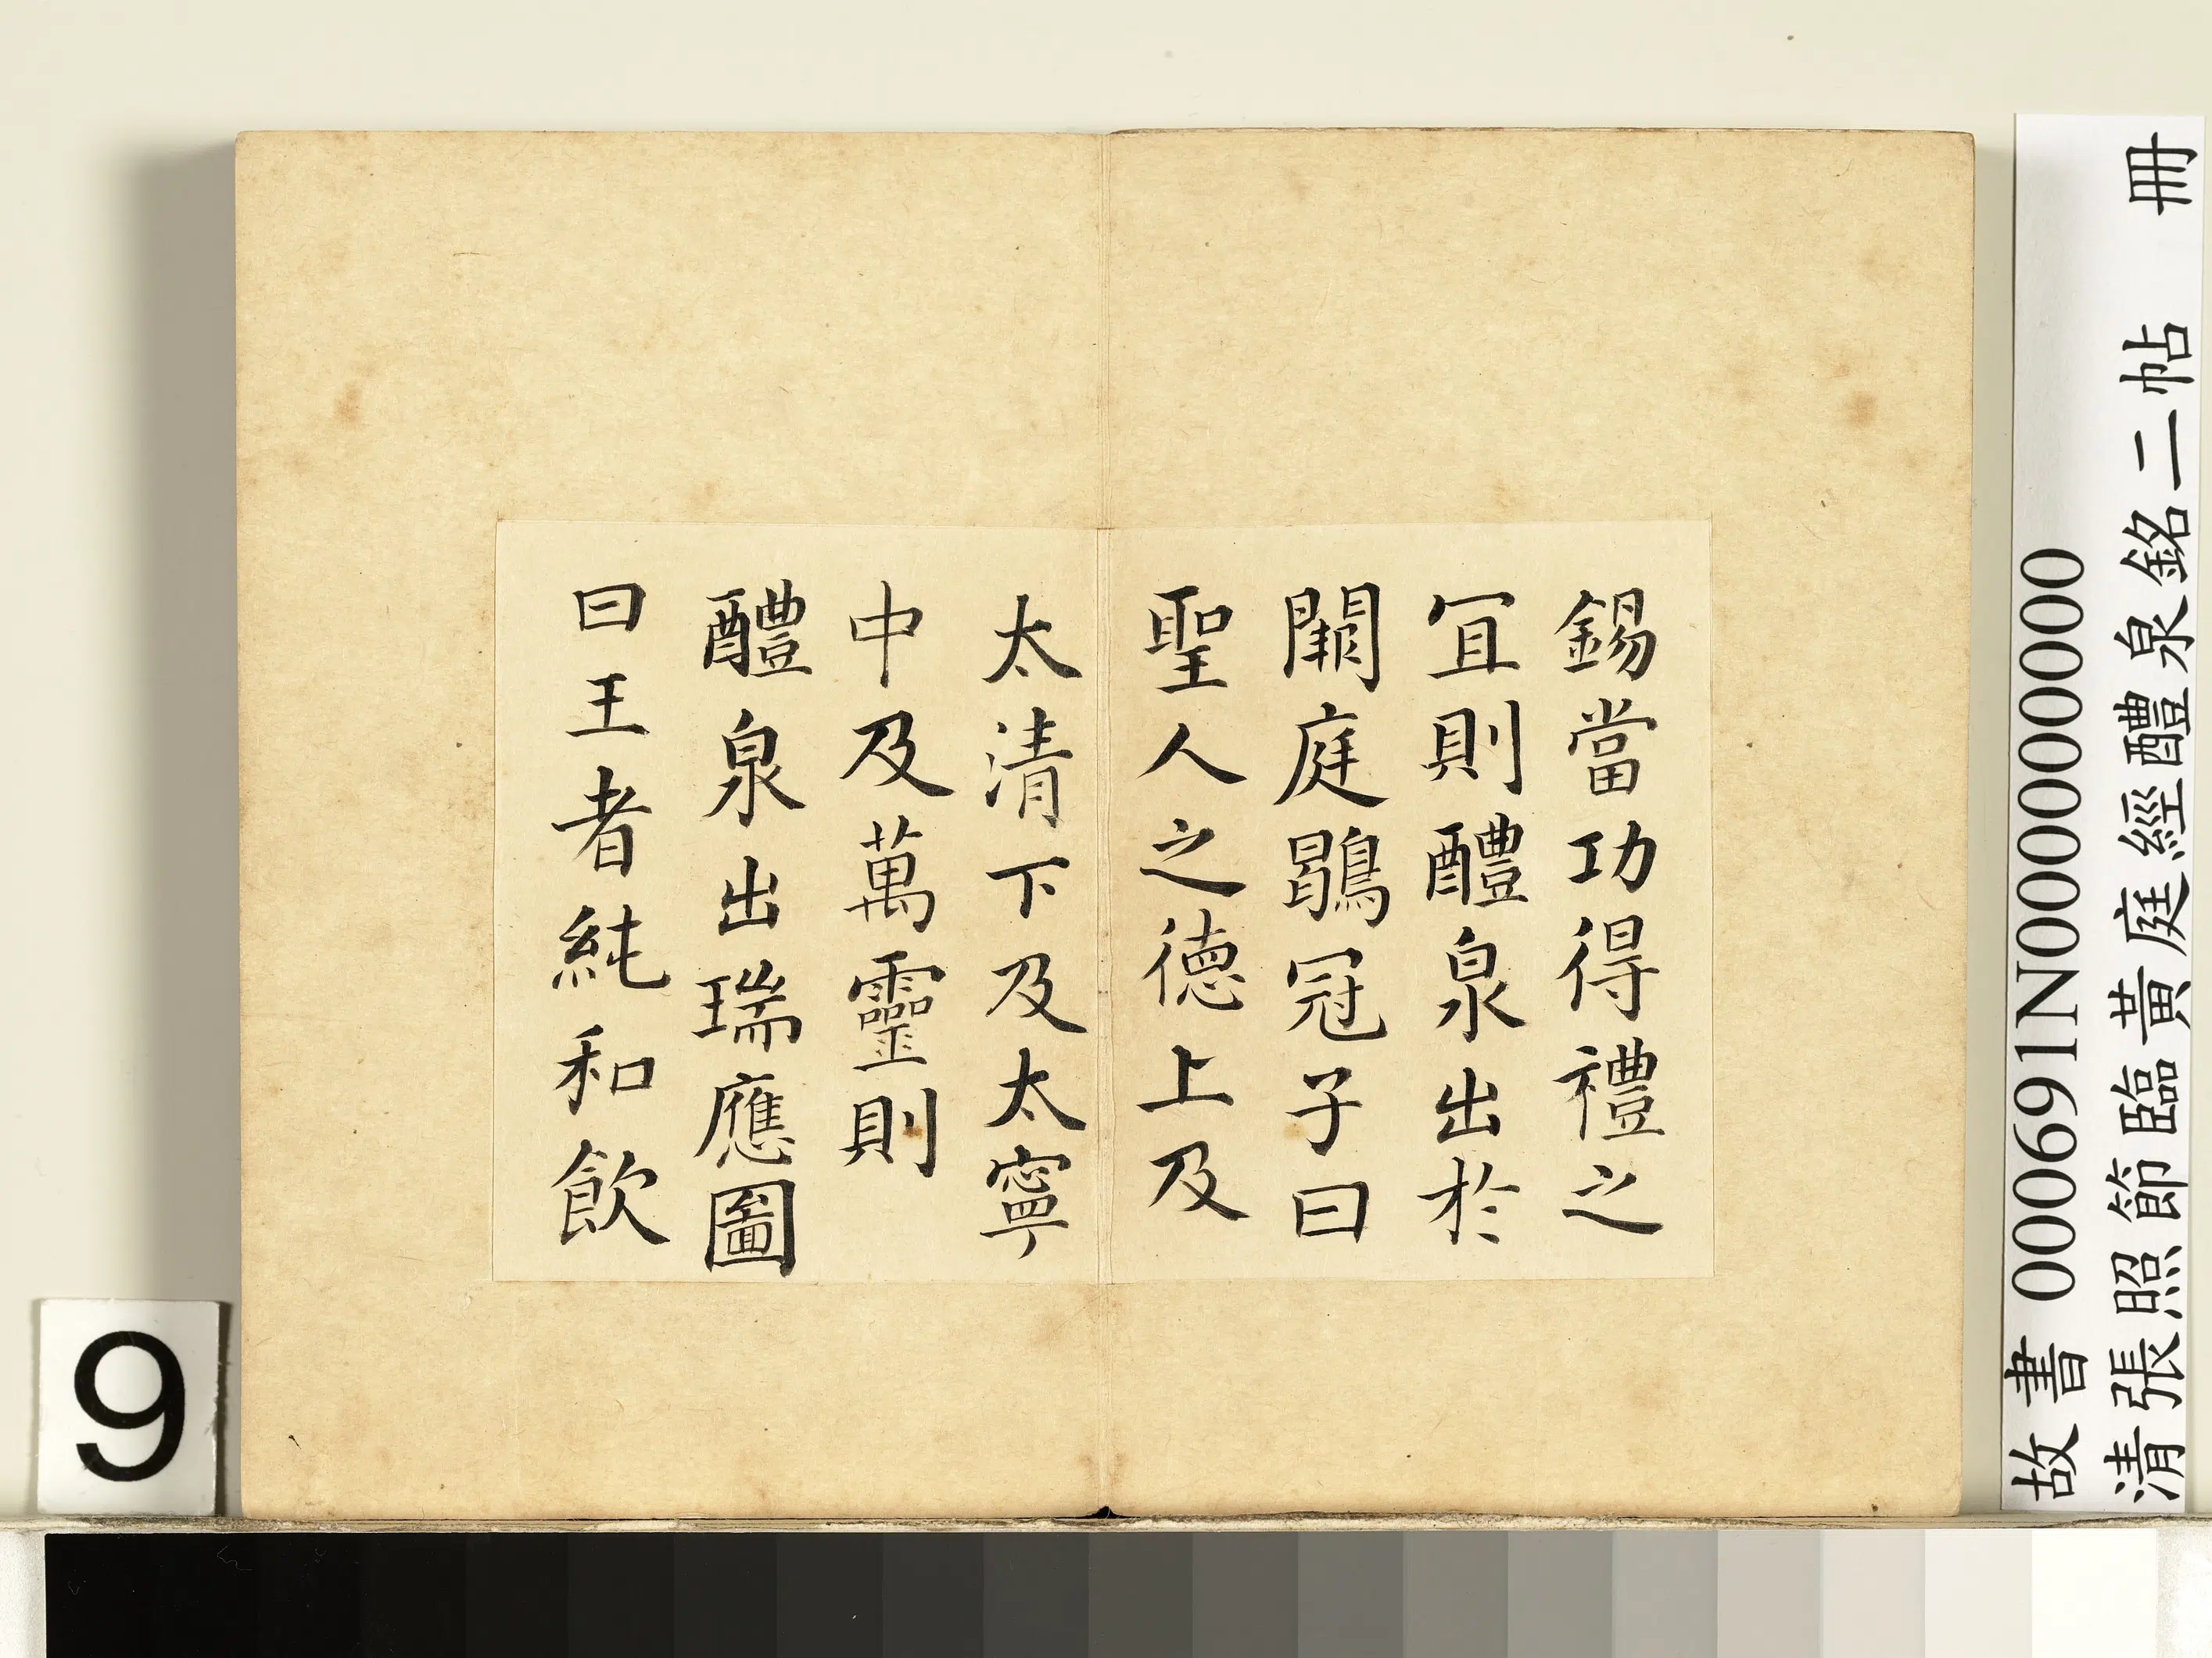 錫當功得禮之
宜則醴泉出於
闕庭鶡冠子曰
聖人之德上及
太清下及太寧
中及萬靈則
醴泉出瑞應圖
曰王者純和飲
故書 000691N000000000
清張照節臨黃庭經醴泉銘二帖 冊
9